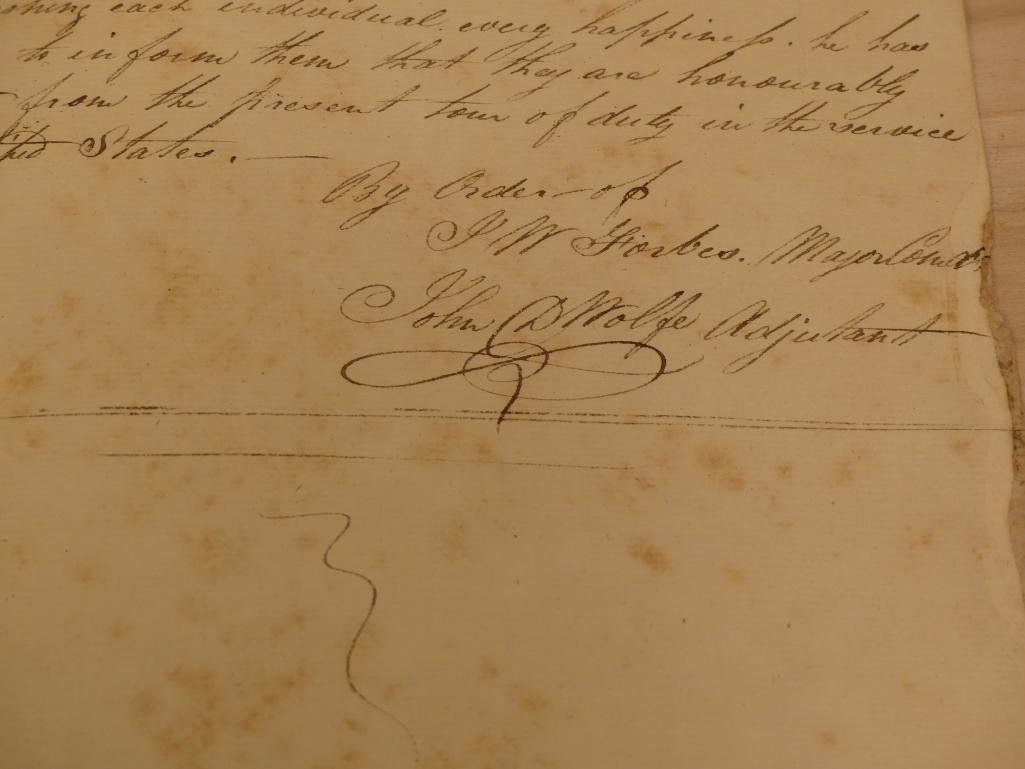 shing each individual every happiness. he has
to inform them that they are honourably
from the present tour of duty in the service
ted States.
By Order of
J W Forbes. Major Comdt
John D Wolfe Adjutant